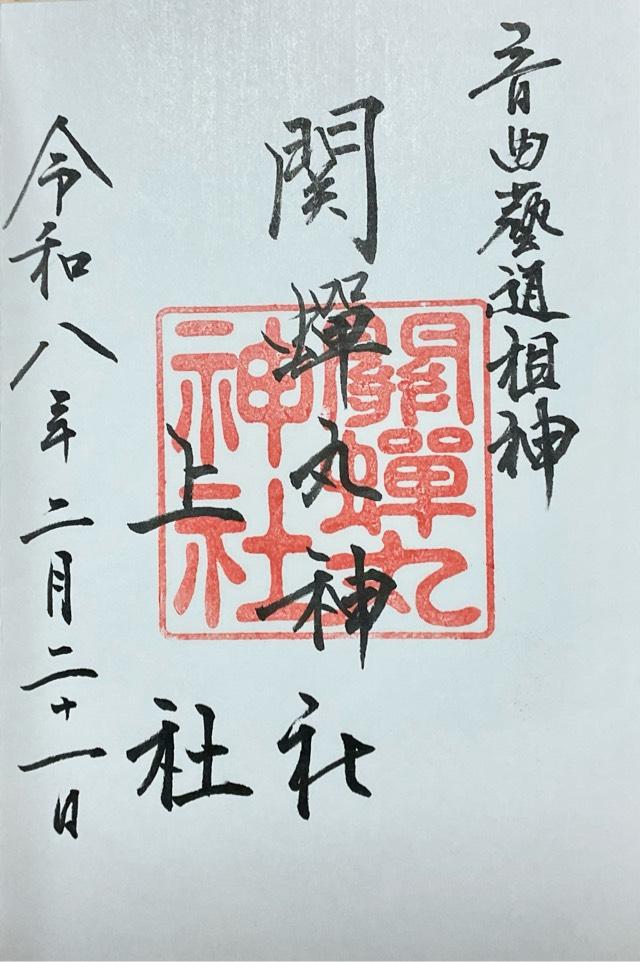 音曲藝道祖神
関蟬丸神社
上社
令和八年二月二十一日
關蟬丸
神社